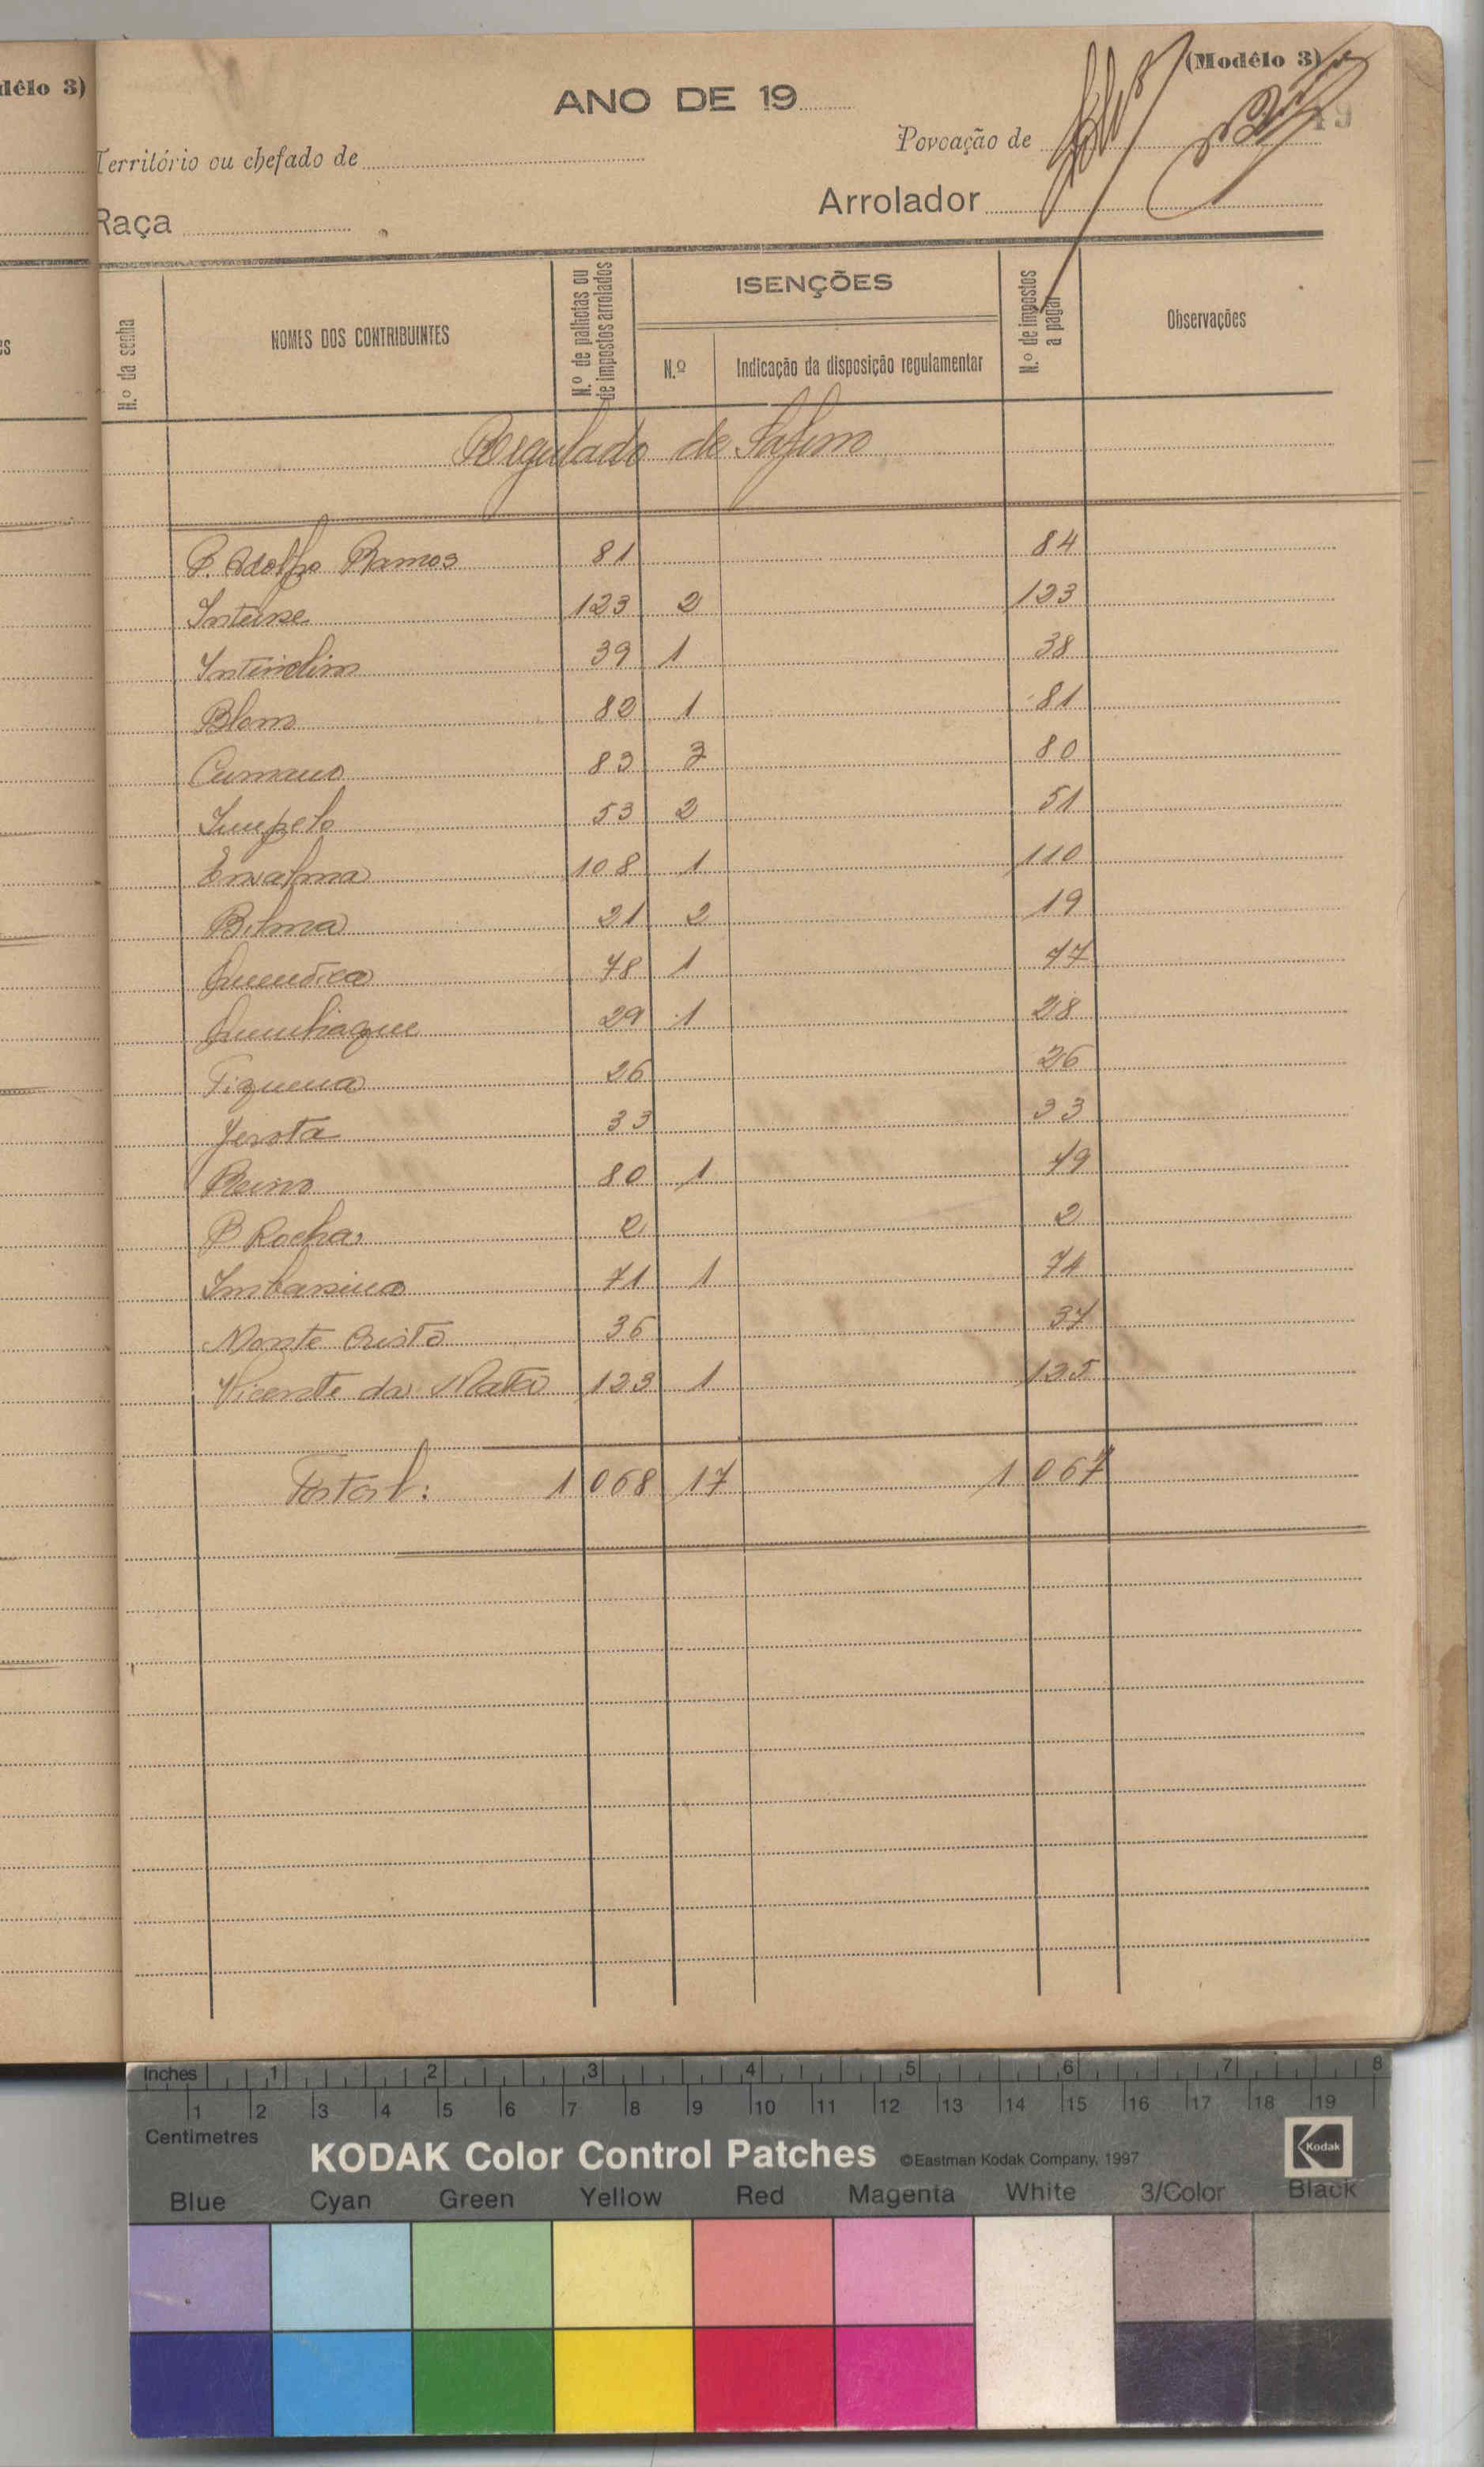 dêlo 3)
(Modêlo 3)
19
ANO DE 19
Território ou chefado de
Povoação de
Raça
Arrolador
N.º da senha
NOMES DOS CONTRIBUINTES
N.º de palhotas ou de impostos arrolados
ISENÇÕES
N.º
Indicação da disposição regulamentar
N.º de impostos a pagar
Observações
es
Regulado de Safim
P. Adolfo Ramos 81 84
123 2 123
39 1 38
Blom 82 1 81
83 3 80
53 2 51
Ensalma 108 1 110
Bilma 21 2 19
78 1 77
29 1 28
26 26
33 33
80 1 79
P Rocha 2 2
71 1 74
Monte Cristo 36 37
Vicente da Mata 123 1 125
Total: 1 068 17 1 067
Inches 1 2 3 4 5 6 7 8
1 2 3 4 5 6 7 8 9 10 11 12 13 14 15 16 17 18 19
Centimetres
KODAK Color Control Patches ©Eastman Kodak Company, 1997 Kodak
Blue Cyan Green Yellow Red Magenta White 3/Color Black